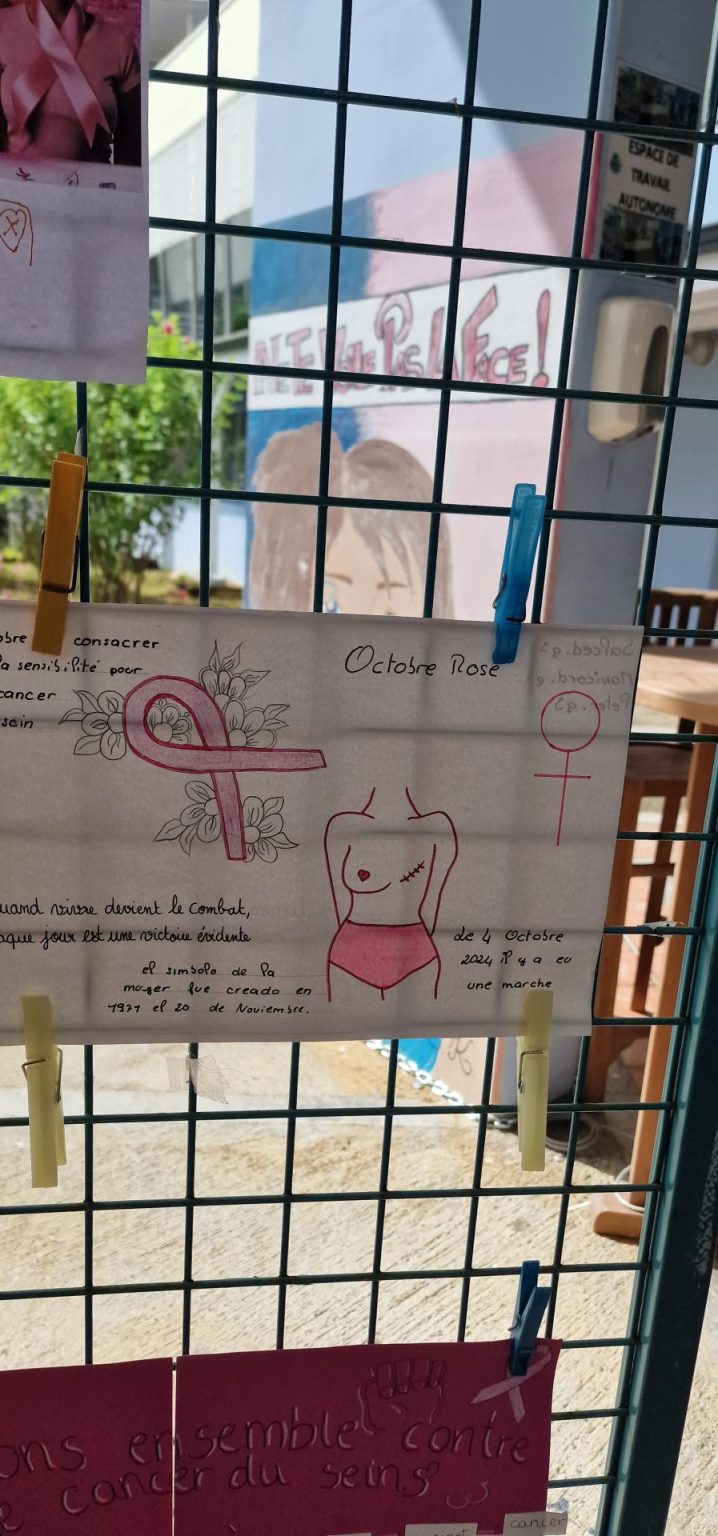 ESPACE DE
TRAVAIL
AUTONOME
NE TE Voile Pas la FacE!
obre consacrer
a sensibilité pour
cancer
sein
Octobre Rose
quand vivre devient le combat,
aque jour est une victoire évidente
el simbolo de la
mujer fue creado en
1971 el 20 de Noviembre.
de 4 Octobre
2024 il y a eu
une marche
ons ensemble contre
e cancer du seins
cancer